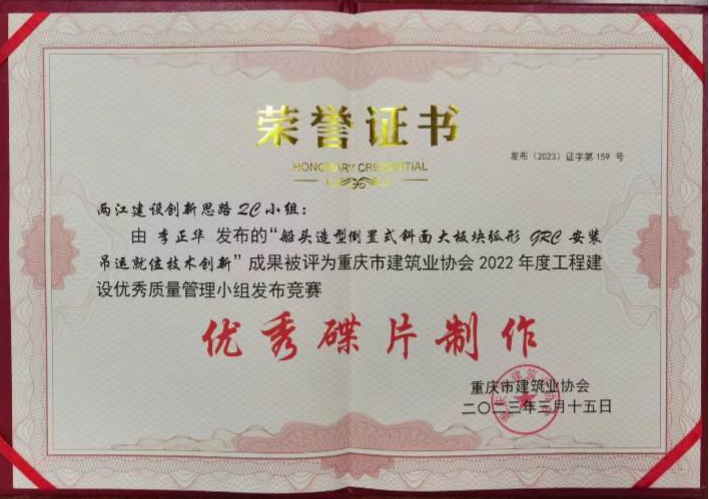 荣誉证书
HONORARY CREDENTIAL
发布（2023）证字第159 号
两江建设创新思路QC小组：
由 李正华 发布的“船头造型倒置式斜面大板块弧形 GRC 安装
吊运就位技术创新”成果被评为重庆市建筑业协会2022年度工程建
设优秀质量管理小组发布竞赛
优秀碟片制作
重庆市建筑业协会
二〇二三年三月十五日